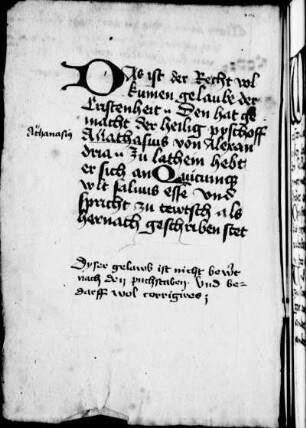 Das ist der Recht vol
kumen gelaube der
Cristenheit Den hat ge
macht der heilig pyschoff
Athanasius
Anathasius von Alexan
dria zu lathein hebt
er sich an Quicunq
vlt saluus esse vnd
spricht zu tewtsch als
hernach geschriben stet
Dyser gelawb ist nicht bewert
nach den puchstaben vnd be=
darff wol corrigires